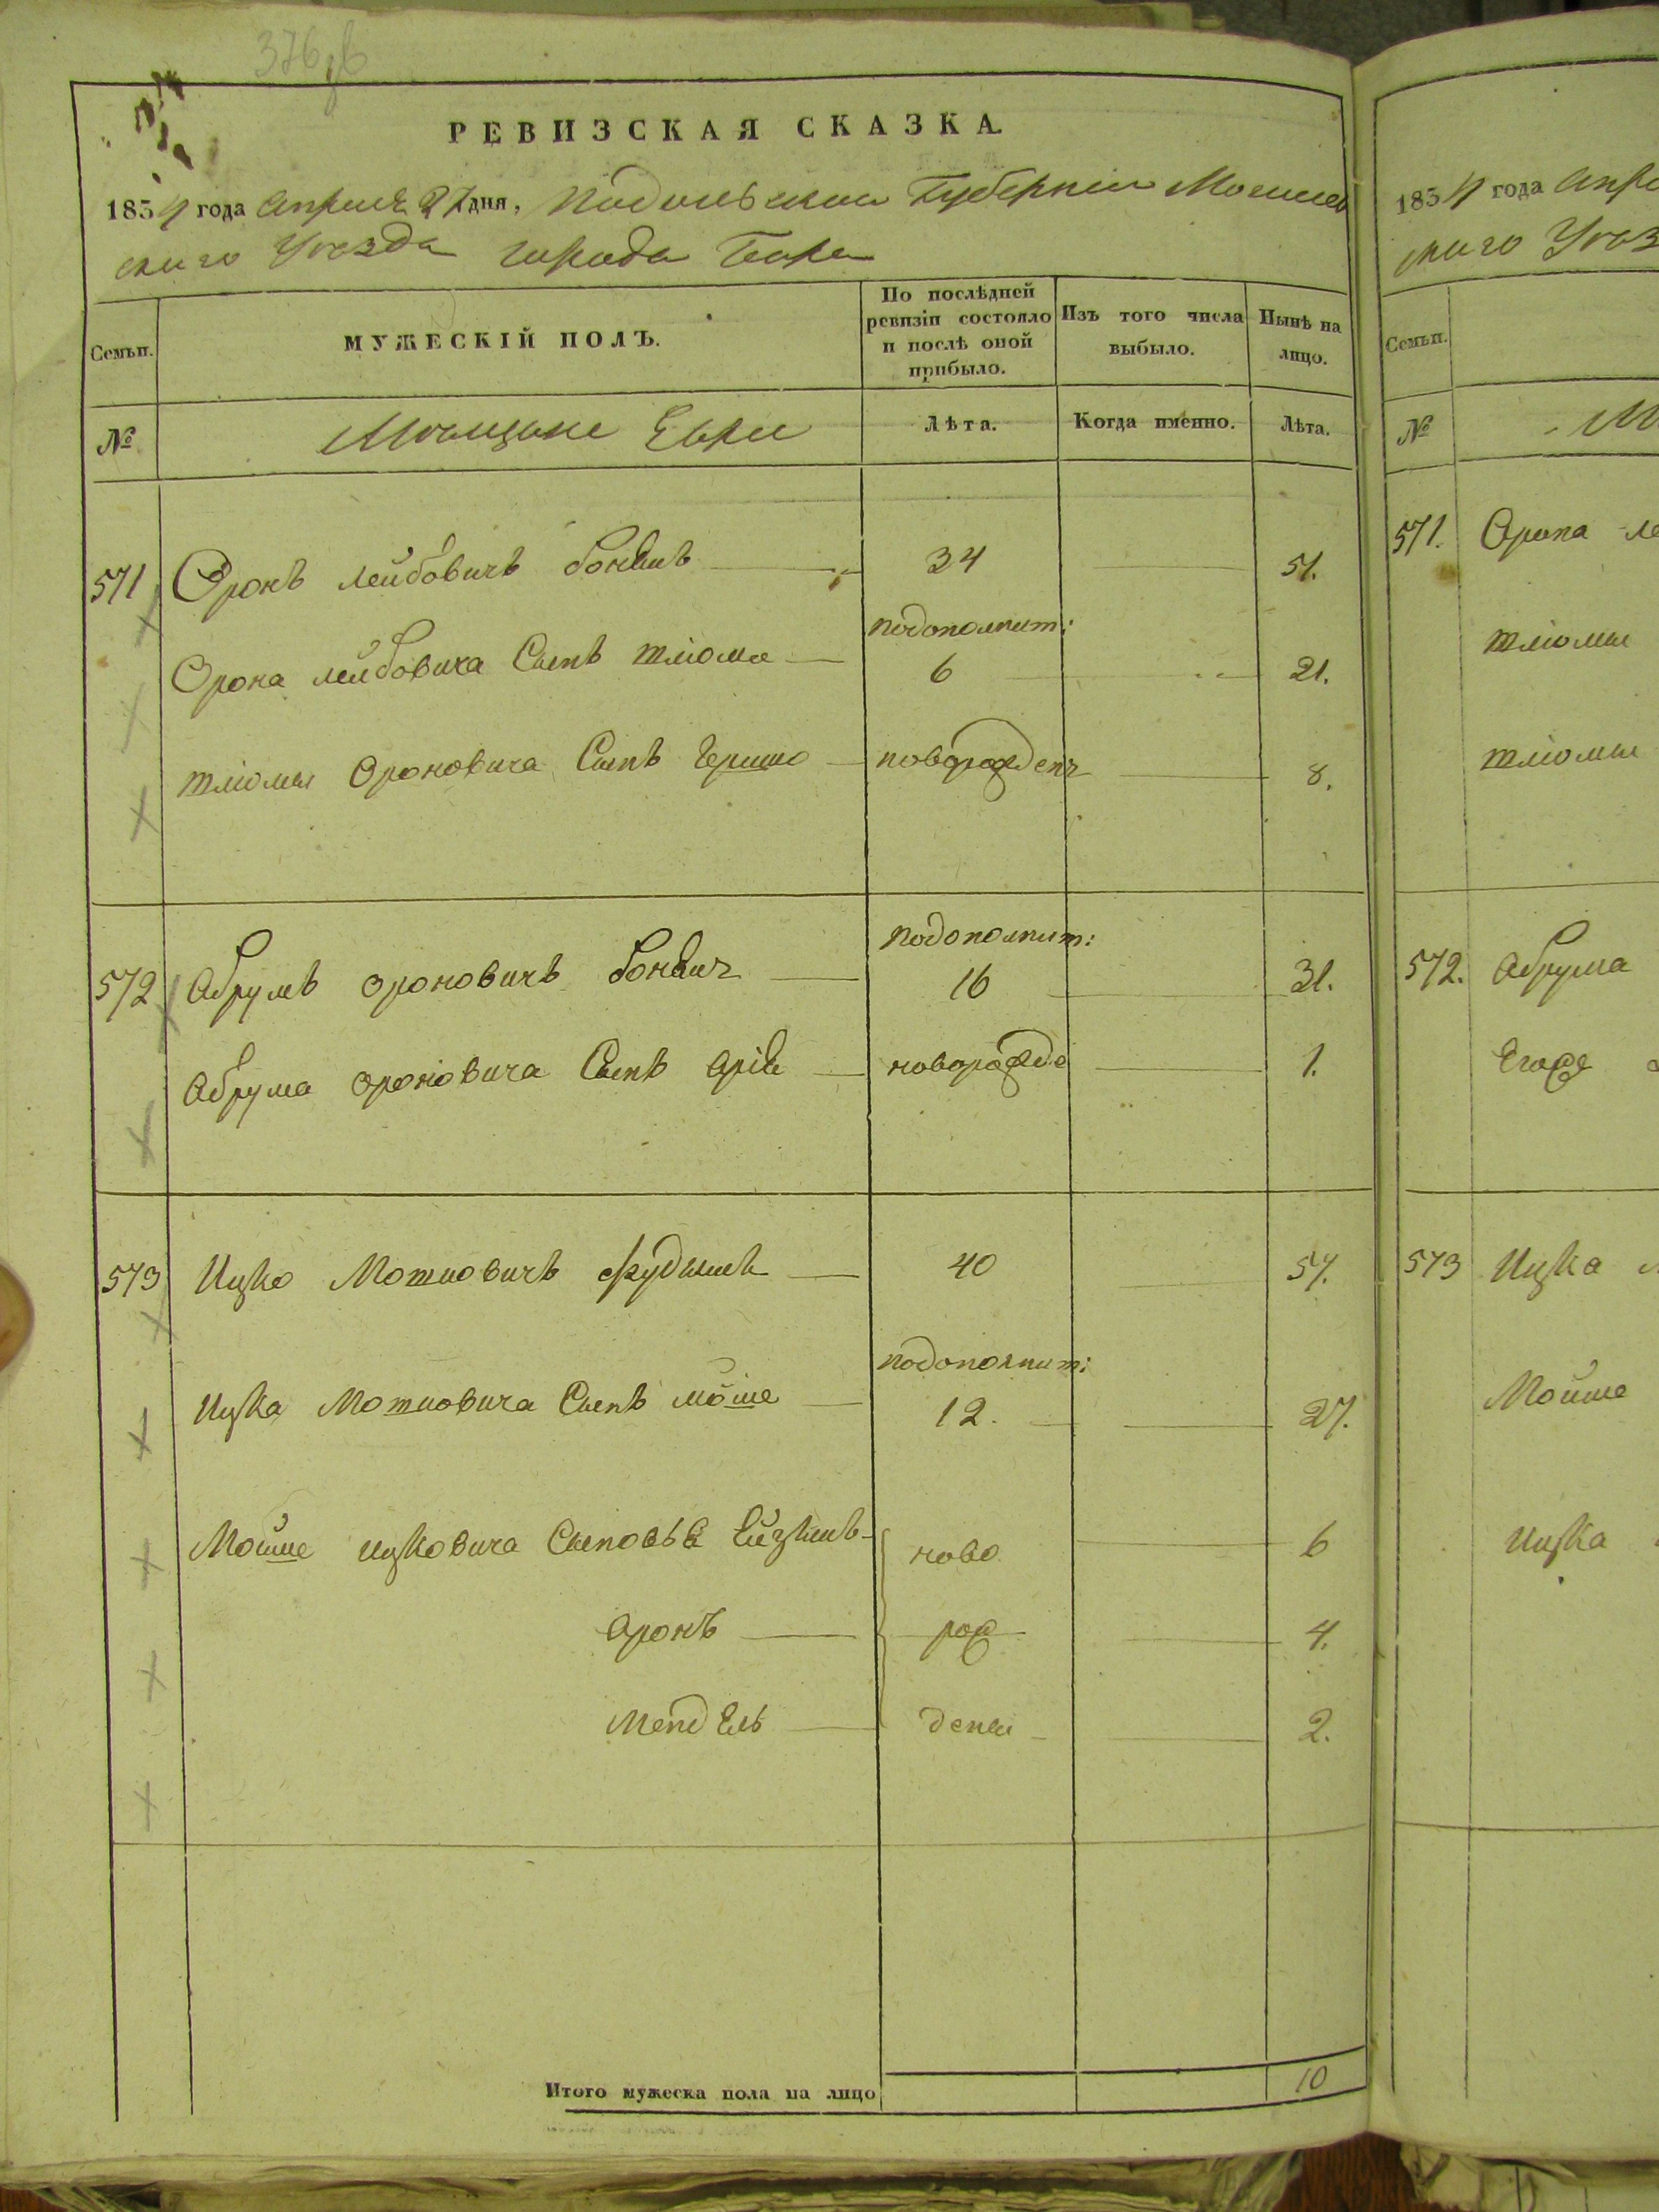 376 об
РЕВИЗСКАЯ СКАЗКА.
1854 года Апреля 27 дня, Подольской Губерніи Могилев
скаго Уезда города Бара
Семьи. МУЖЕСКІЙ ПОЛЪ. По послѣдней ревизіи состояло и послѣ оной прибыло. Изъ того числа выбыло. Нынѣ на лицо.
№ Мѣщане Евреи Лѣта. Когда именно. Лѣта.
571 Оронъ Лейбовичъ 34 51.
подополнит:
Орона Лейбовича Сынъ Шліома 6 21.
Шліомы Ороновича Сынъ Гершко новорожденъ 8.
подополнит:
572 Абрумъ Ороновичъ 16 31.
Абрума Ороновича Сынъ Аріе новорожде 1.
573 Ицко Мотиовичъ 40 57.
подополнит:
Ицка Мотиовича Сынъ Мойше 12. 27.
Мойше Ицковича Сыновья ново 6
Аронъ рож 4.
Мендель дены 2.
Итого мужеска пола на лицо 10
1854 года Апре
скаго Уез
Семьи.
№ М
571. Орона Ле
Шліомы
Шліомы
572. Абрума
Его же
573 Ицка М
Мойше
Ицка